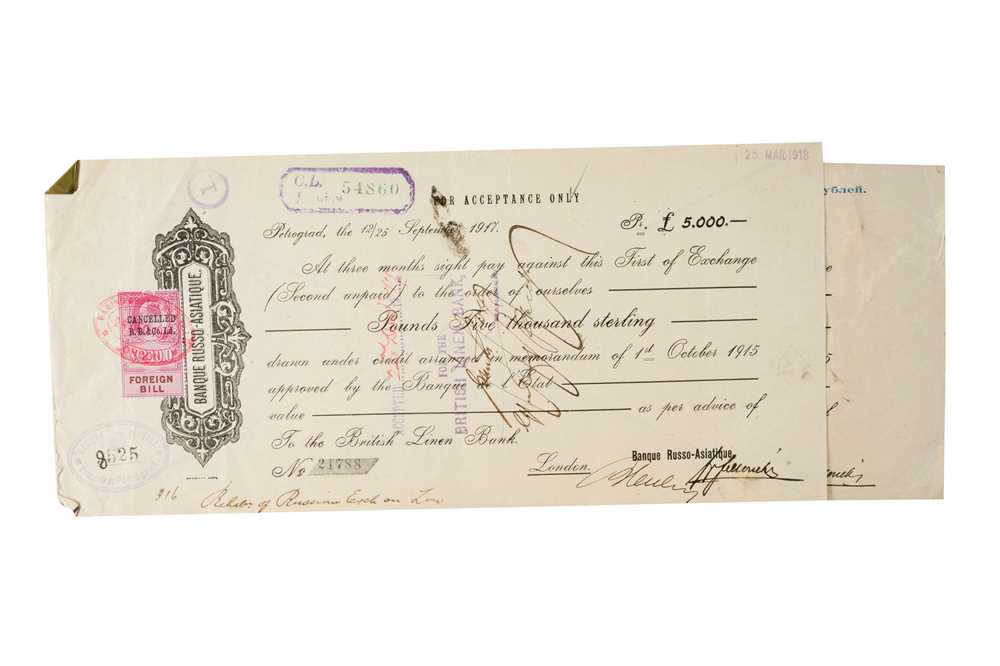 25 MAR 1918
рублей.
I
C.L. 54860
FOR ACCEPTANCE ONLY
Petrograd, the 12/25 September 1917. Pr. £ 5.000.—
At three months sight pay against this First of Exchange
(Second unpaid) to the order of ourselves
Pounds Five thousand sterling
drawn under credit arranged in memorandum of 1st October 1915
approved by the Banque l'Etat
value as per advice of
To the British Linen Bank.
London.
Banque Russo-Asiatique.
No 21788
BANQUE RUSSO-ASIATIQUE.
CANCELLED
FOREIGN
BILL
8525
ACCEPTED
FOR THE
BRITISH LINEN BANK,
916 of Russian Exch on Lon